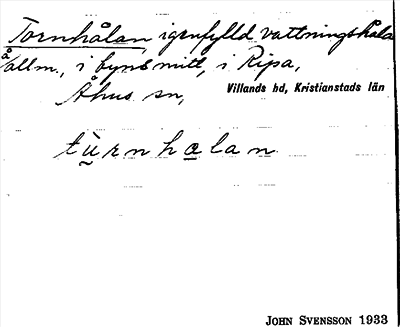 Tornhålan, igenfylld vattningshåla
å allm., i byns mitt, i Ripa,
Åhus sn, Villands hd, Kristianstads län
tùrnhålan
JOHN SVENSSON 1933